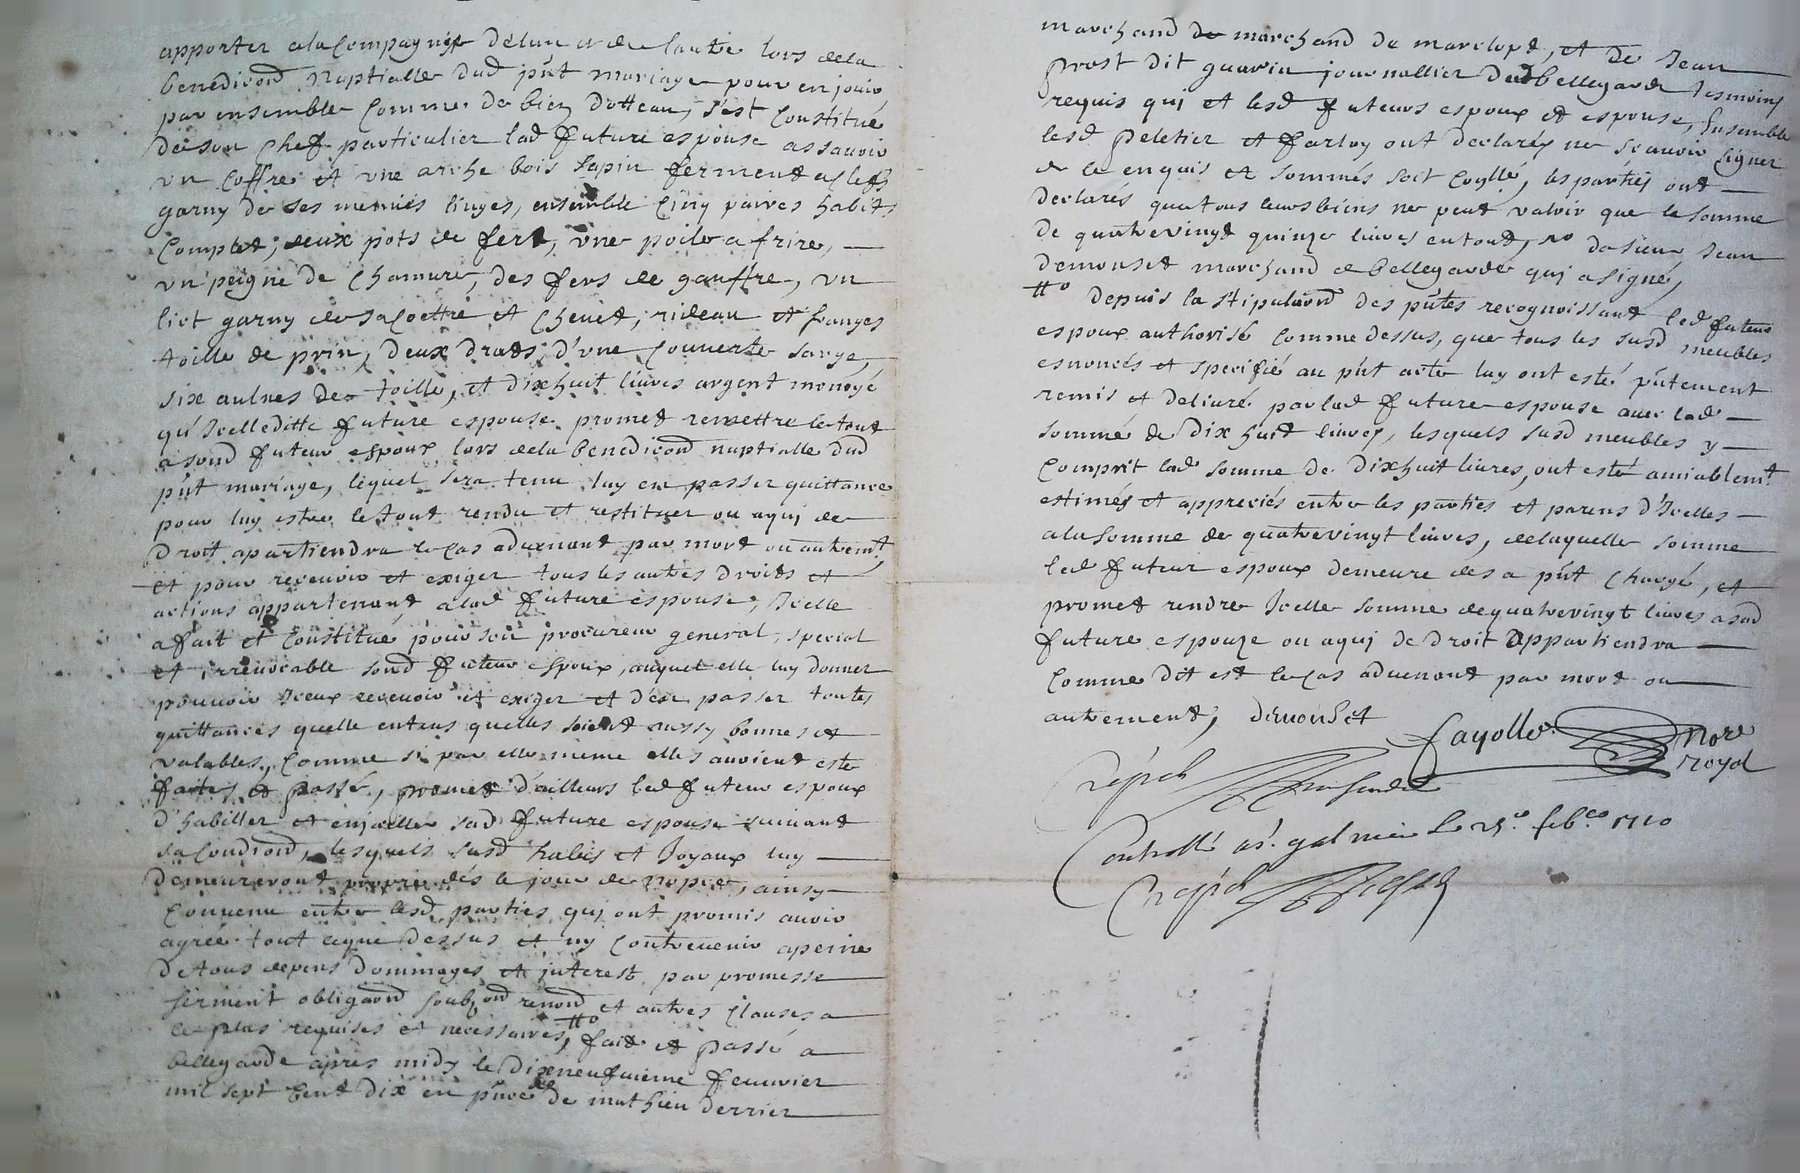 apporter a la Compagnye de l'un et de l'autre lors de la
benediction Nuptialle dud p̃nt mariage pour en jouir
par ensemble Comme de bien dotteau, s'est Constitué
de son Chef particulier lad future espouse assavoir
un Coffre et une arche bois sapin ferment a Clefs
garny de ses menues linges, ensemble Cinq paires habits
Complet, deux pots de fert, une poile a frire,
un peigne de Chanure, des fers de gauffre, un
lict garny de sa Coettre et Chevet, rideau et franges
toille de prin, deux draps, d'une Couverte sarge,
six aulnes de toille, et dixhuit livres argent monoyé
qu'Icelle ditte future espouse promet remettre le tout
a sond futeur espoux lors de la benediond nuptialle dud
p̃nt mariage, lequel sera tenu luy en passer quittance
pour luy estre le tout rendu et restituer ou a qui de
Droit apartiendra le Cas advenant par mort ou autremt
et pour recevoir et exiger tous les autres droits et
actions appartenant a lad future espouse, Icelle
a fait et Constitué pour son procureur general, special
et irrevocable sond futeur espoux, auquel elle luy donner
pouvoir Iceux recevoir et exiger et d'en passer toutes
quittances quelle entens quelles soient aussy bonnes et
valables, Comme si par elle meme elles avoient este
faites et passé, promet d'ailleurs led futeur espoux
d'habiller et enjoeller sad future espouse suivant
sa Condiond, lesquels susd habis et Joyaux luy
Demeureront propre dès le jour de nopce, ainsy
Convenu entre lesd parties qui ont promis avoir
agrée tout ce que dessus et ny Contrevenir a peine
De tous depens Dommages et interest par promesse
serment obligaond soubz ond renond et autres Clauses a
ce plus requises et necessaires, tto fait et passé a
bellegarde apres midy le dixneufvieme feuvrier
mil sept Cent dix en p̃nce de mathieu derrier
marchand de marchand de marclopt, et de Jean
prost dit guarin journallier dud bellegarde tesmoins
requis qui et lesd futeurs espoux et espouse, Ensemble
lesd peletier et farloy ont declarés ne scavoir signer
de ce enquis et sommés soit Coyllé, les parties ont
declarés que tous leurs biens ne peut valoir que le somme
de quatrevingt quinze livres en tout, no de sieur Jean
demonset marchand de bellegarde qui a signé,
tto depuis la stipulaond des p̃ntes recognoissant led futeur
espoux authorisé Comme dessus, que tous les susd meubles
enoncés et specifié au p̃nt acte luy ont esté p̃ntement
remis et delivré par lad future espouse avec lad
somme de dix huit livres, lesquels susd meubles y
Comprit lad somme de dixhuit livres, ont esté amiablemt
estimés et appreciés entre les parties et parens d'Icelles
a la somme de quatrevingt livres, de laquelle somme
led futeur espoux demeure des a p̃nt Chargé, et
promet rendre Icelle somme de quatrevingt livres a sad
future espouze ou a qui de droit appartiendra
Comme dit est le Cas advenant par mort ou
autrement, demonset
fayolle Nore
royal
Controllé a St galmier le 25e febco 1710